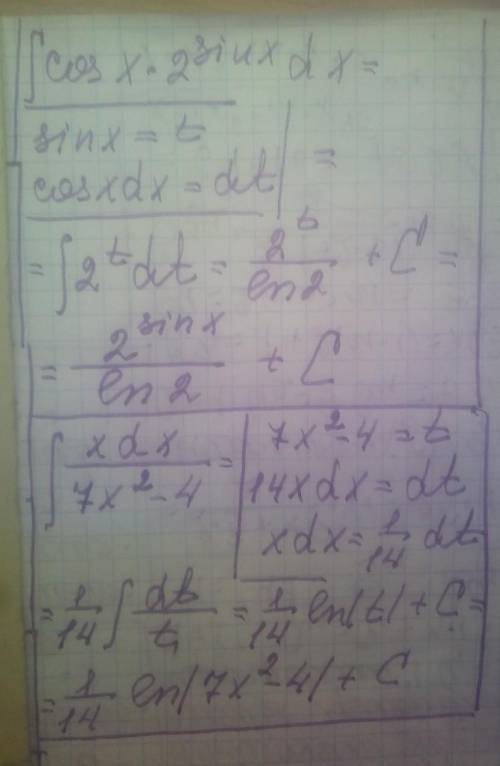 ∫ cos x · 2^{sin x} dx =
sin x = t
cos x dx = dt | =
= ∫ 2^t dt = 2^t / ln 2 + C =
= 2^{sin x} / ln 2 + C
∫ x dx / (7x² - 4) = | 7x² - 4 = t
14x dx = dt
x dx = 1/14 dt
= 1/14 ∫ dt / t = 1/14 ln|t| + C =
= 1/14 ln|7x² - 4| + C